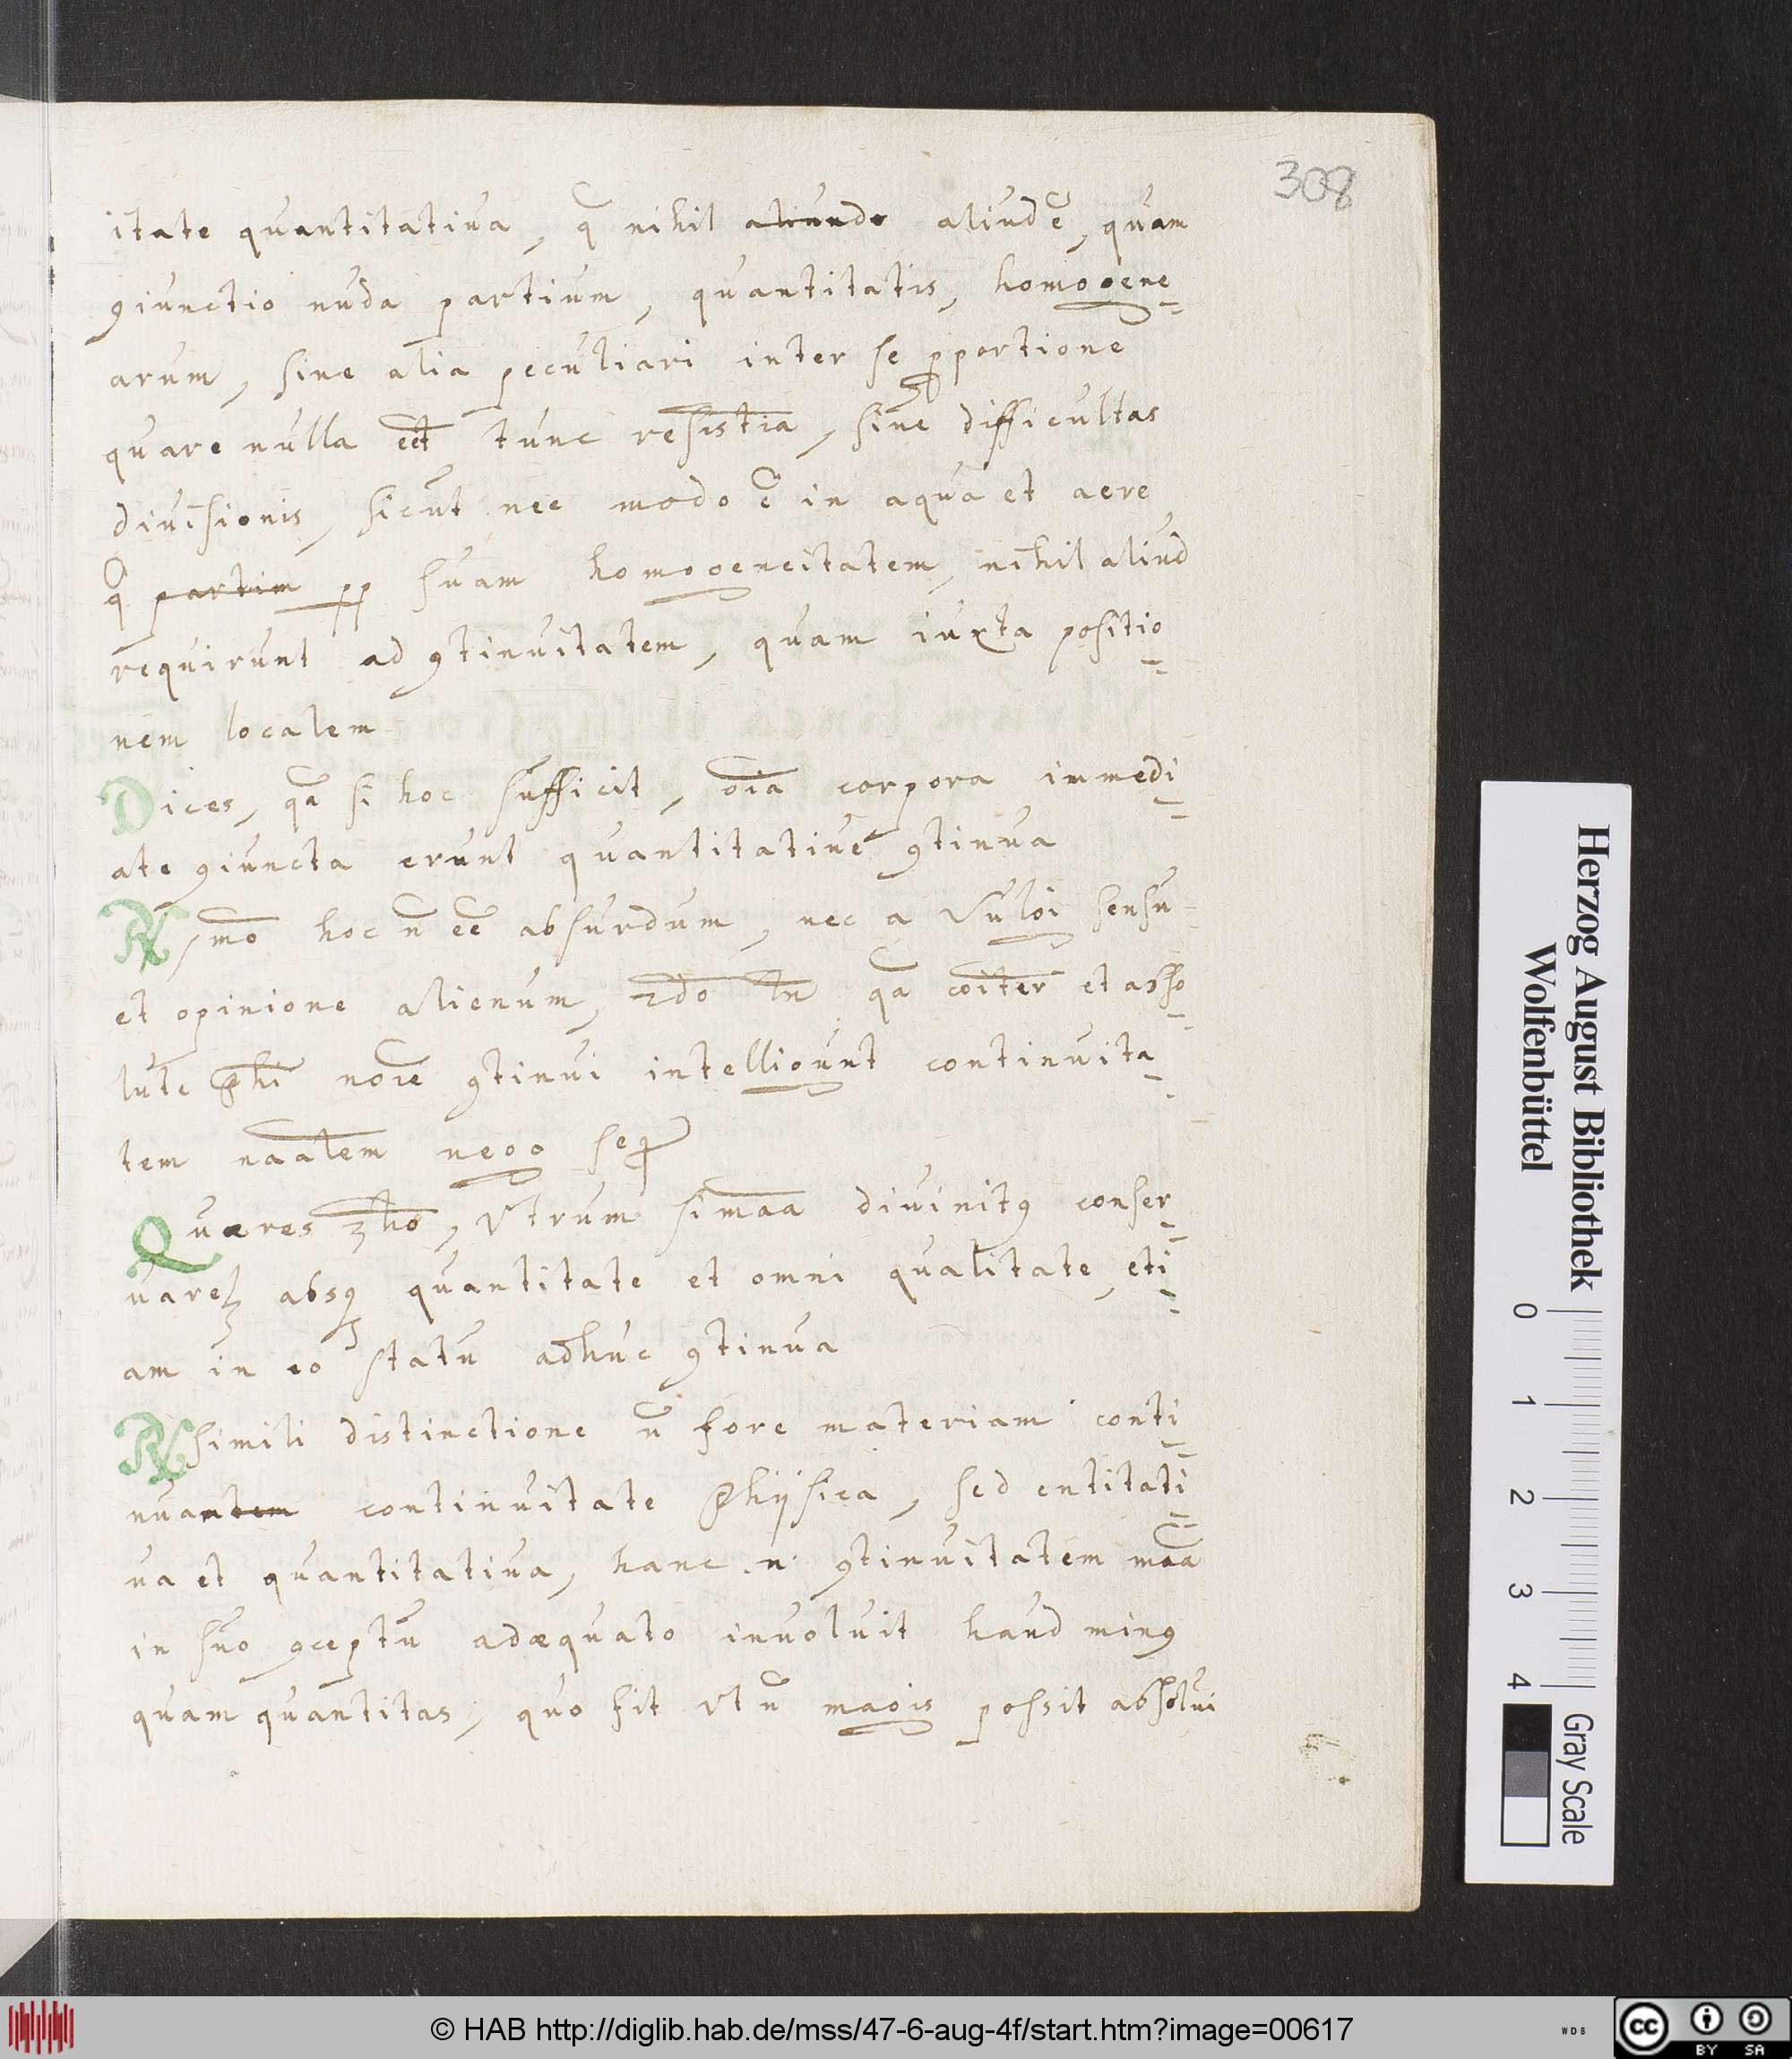 308
itate quantitatiua, q̃ nihil aliunde aliud ẽ, quam
ꝯiunctio nuda partium, quantitatis, homogene=
arum, sine alia peculiari inter se ꝓportione
quare nulla eẽt tunc resist̃ia, siue difficultas
diuisionis, sicut nec modo ẽ in aqua et aere
q̃ partim pp suam homogeneitatem, nihil aliud
requirunt ad ꝯtinuitatem, quam iuxta positio=
nem localem
Dices, qã si hoc sufficit, oĩa corpora immedi=
ate ꝯiuncta erunt quantitatiue ꝯtinua
R pmõ hoc ñ eẽ absurdum, nec a vulgi sensu=
et opinione alienum, 2dõ tñ qã coĩter et abso=
lute Phĩ noĩe ꝯtinui intelligunt continuita=
tem naãlem nego seqr
Quæres 3tiõ, Vtrum si maã diuinitꝰ conser=
uaretʒ absqʒ quantitate et omni qualitate, eti=
am in eo statu adhuc ꝯtinua
R simili distinctione ñ fore materiam conti=
nuantem continuitate Physica, sed entitati=
ua et quantitatiua, hanc .n. ꝯtinuitatem maã
in suo ꝯceptu adæquato inuoluit haud minꝰ
quam quantitas, quo fit vt ñ magis possit absolui
Herzog August Bibliothek
Wolfenbüttel
0 1 2 3 4
Gray Scale
© HAB http://diglib.hab.de/mss/47-6-aug-4f/start.htm?image=00617
WDB
cc BY SA